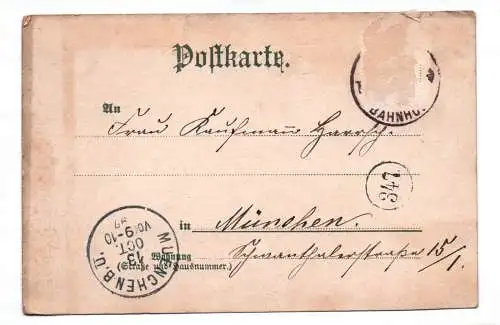 Postkarte.
BAHNHO
An
Frau Kaufmann Harrsch.
347
in München.
Schwanthalerstraße 15/1.
Wohnung
(Straße und Hausnummer.)
MÜNCHEN.B.Ü.
13
OCT
VOR 9-10
97